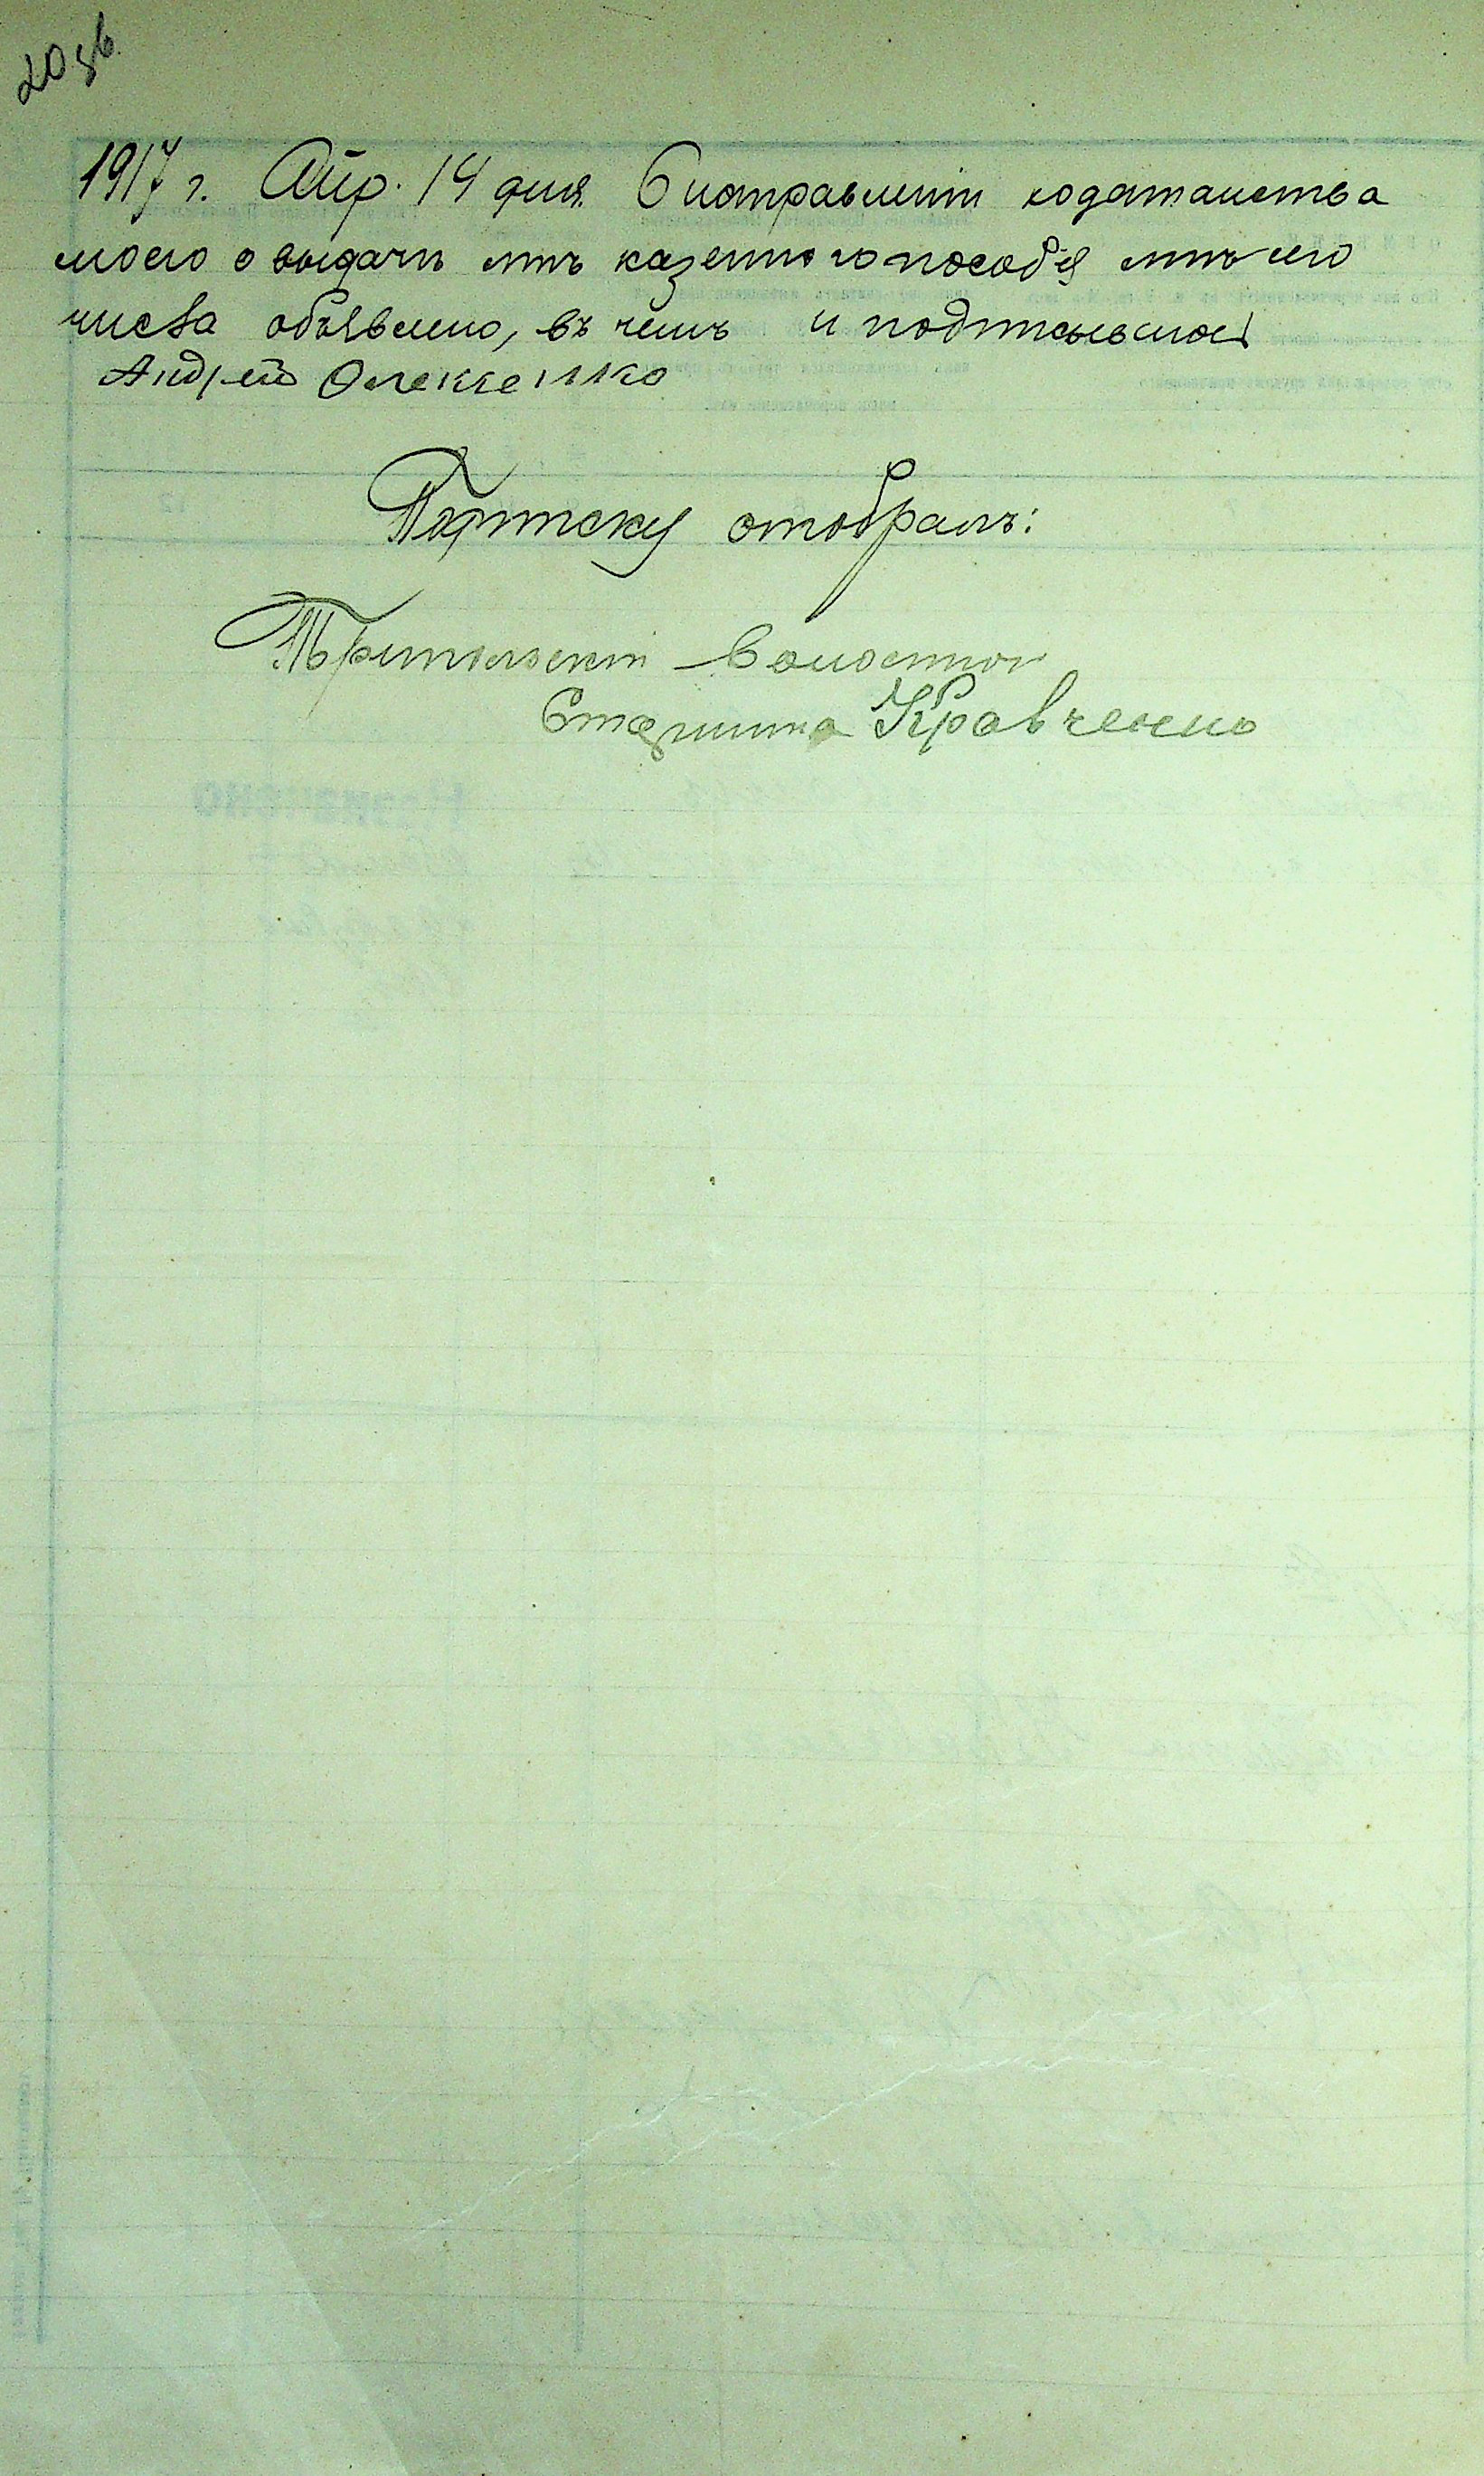 20 зв.
1917 г. Апр. 14 дня. О направленіи ходатайства
моего о выдачѣ мнѣ казеннаго пособія мнѣ сего
числа объявлено, въ чемъ и подписываюсь
Андрей Олексенко
Подписку отобралъ:
Волостной
Старшина Кравченко